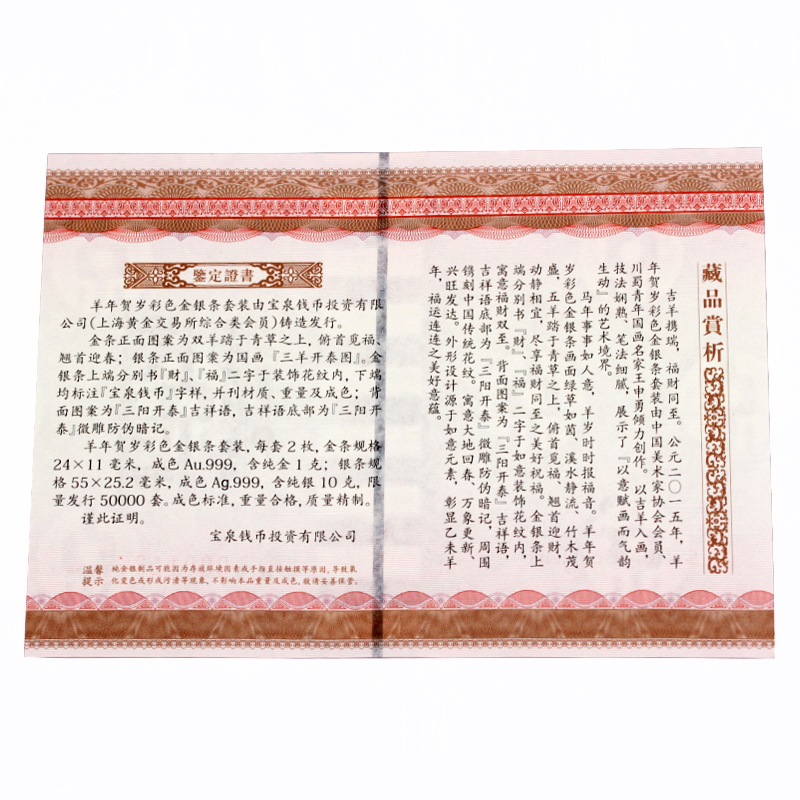 鉴定證書
羊年贺岁彩色金银条套装由宝泉钱币投资有限
公司(上海黄金交易所综合类会员)铸造发行。
金条正面图案为双羊踏于青草之上，俯首觅福、
翘首迎春；银条正面图案为国画『三羊开泰图』。金
银条上端分别书『财』、『福』二字于装饰花纹内，下端
均标注『宝泉钱币』字样，并刊材质、重量及成色；背
面图案为『三阳开泰』吉祥语，吉祥语底部为『三阳开
泰』微雕防伪暗记。
羊年贺岁彩色金银条套装，每套2枚，金条规格
24×11毫米，成色Au.999，含纯金1克；银条规
格55×25.2毫米，成色Ag.999，含纯银10克，限
量发行50000套。成色标准，重量合格，质量精制。
谨此证明。
宝泉钱币投资有限公司
温馨
提示
纯金银制品可能因为存放环境因素或手指直接触摸等原因，导致氧
化变色或形成污渍等现象，不影响本品重量及成色，敬请妥善保管。
藏品赏析
吉羊携瑞，福财同至。公元二〇一五年，羊
年贺岁彩色金银条套装由中国美术家协会会员、
川蜀青年国画名家王申勇倾力创作。以吉羊入画，
技法娴熟、笔法细腻，展示了『以意赋画而气韵
生动』的艺术境界。
马年事事如人意，羊岁时时报福音。羊年贺
岁彩色金银条画面绿草如茵、溪水静流、竹木茂
盛，五羊踏于青草之上，俯首觅福、翘首迎财，
动静相宜，尽享福财同至之美好祝福。金银条上
端分别书『财』、『福』二字于如意装饰花纹内，
寓意福财双至。背面图案为『三阳开泰』吉祥语，
吉祥语底部为『三阳开泰』微雕防伪暗记，周围
镌刻中国传统花纹。寓意大地回春、万象更新、
兴旺发达。外形设计源于如意元素，彰显乙未羊
年，福运连连之美好意蕴。